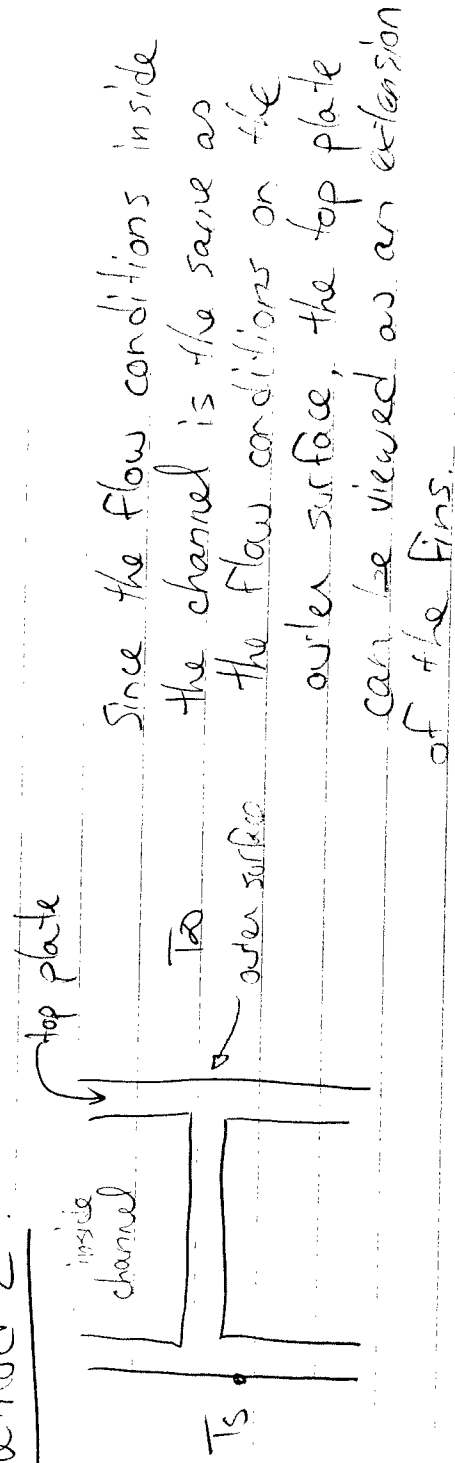 2.
top plate
inside
channel
Ts
T∞
outer surface
Since the flow conditions inside
the channel is the same as
the flow conditions on the
outer surface, the top plate
can be viewed as an extension
of the fins.